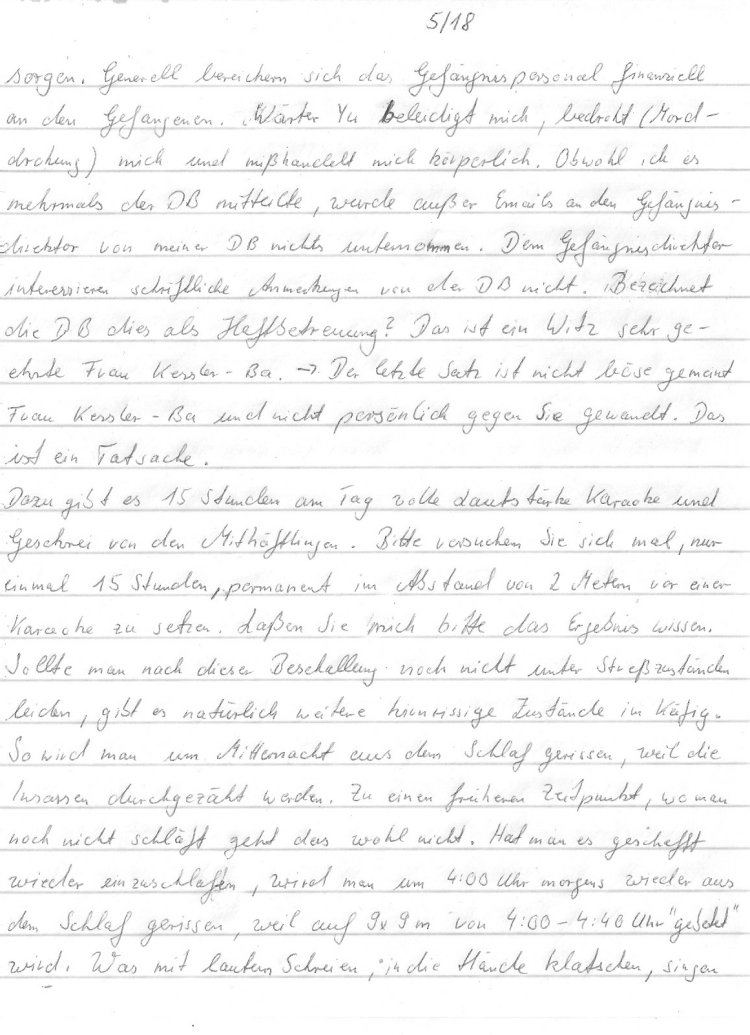 5/18
sorgen. Generell bereichern sich das Gefängnispersonal finanziell
an den Gefangenen. Wärter Yu beleidigt mich, bedroht (Mord-
drohung) mich und mißhandelt mich körperlich. Obwohl ich es
mehrmals der DB mitteilte, wurde außer Emails an den Gefängnis-
direktor von meiner DB nichts unternommen. Dem Gefängnisdirektor
interessieren schriftliche Anmerkungen von der DB nicht. Bezeichnet
die DB dies als Haftbetreuung? Das ist ein Witz sehr ge-
ehrte Frau Kessler-Ba. → Der letzte Satz ist nicht böse gemeint
Frau Kessler-Ba und nicht persönlich gegen Sie gewandt. Das
ist ein Tatsache.
Dazu gibt es 15 Stunden am Tag volle Lautstärke Karaoke und
Geschrei von den Mithäftlingen. Bitte versuchen Sie sich mal, nur
einmal 15 Stunden, permanent im Abstand von 2 Metern vor einer
Karaoke zu setzen. Laßen Sie mich bitte das Ergebnis wissen.
Sollte man nach dieser Beschallung noch nicht unter Streßzuständen
leiden, gibt es natürlich weitere hirnrissige Zustände im Käfig.
So wird man um Mitternacht aus dem Schlaf gerissen, weil die
Insassen durchgezählt werden. Zu einen früheren Zeitpunkt, wo man
noch nicht schläft geht das wohl nicht. Hat man es geschafft
wieder einzuschlafen, wird man um 4:00 Uhr morgens wieder aus
dem Schlaf gerissen, weil auf 9x9m von 4:00-4:40 Uhr "gebetet"
wird. Was mit lautem Schreien, in die Hände klatschen, singen